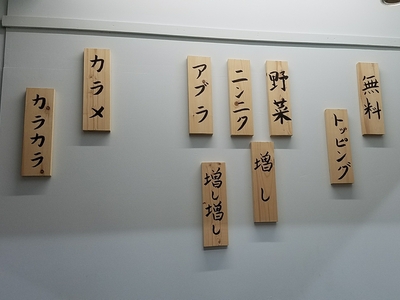 無料
トッピング
野菜
ニンニク
アブラ
増し
増し増し
カラメ
カラカラ